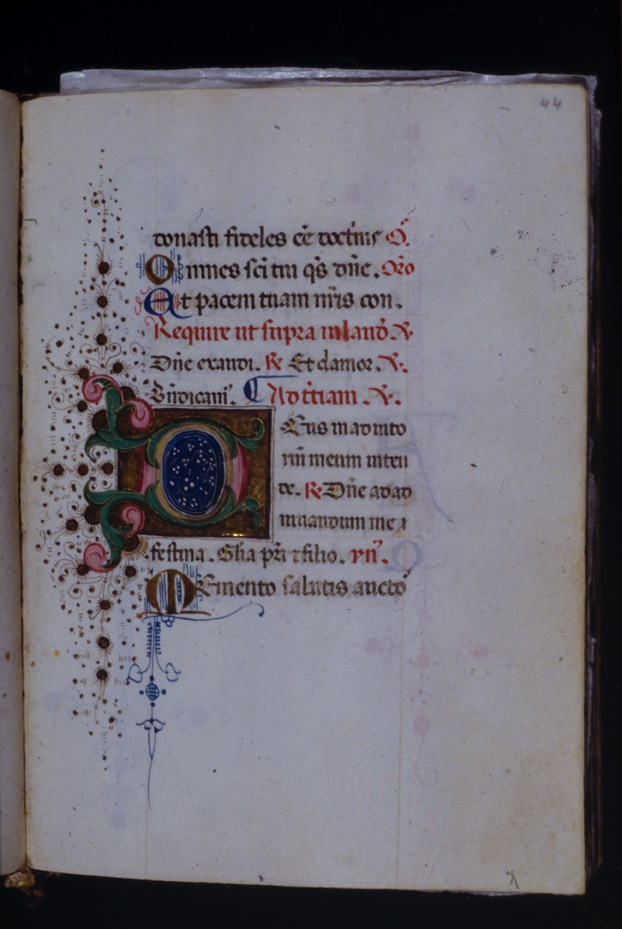 44
donasti fideles eē doctrīs O.
Omnes sc̄i tui q̄s dn̄e. Or̄o
Et pacem tuam nr̄is con.
Require ut supra in laud. V.
Dn̄e exaudi. R. Et clamor. V.
Bn̄dicam. Ad tertiam. V.
Deus in adiuto
riū meum inten
de. R. Dn̄e ad ad
iuuandum me
festina. Gl̄ia pr̄i filio. yn̄.
Memento salutis aucto